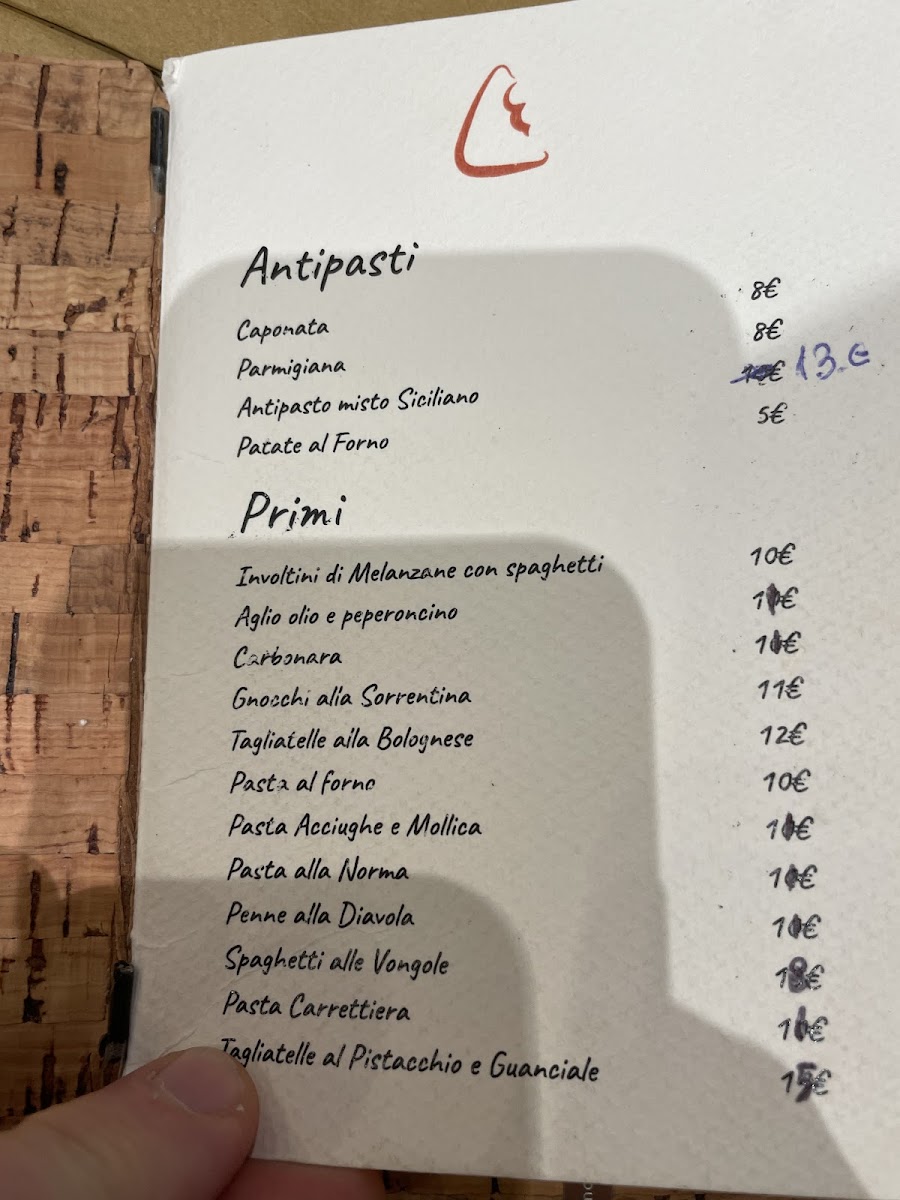 Antipasti
Caponata 8€
Parmigiana 8€
Antipasto misto Siciliano 13.€
Patate al Forno 5€
Primi
Involtini di Melanzane con spaghetti 10€
Aglio olio e peperoncino 11€
Carbonara 11€
Gnocchi alla Sorrentina 11€
Tagliatelle alla Bolognese 12€
Pasta al forno 10€
Pasta Acciughe e Mollica 11€
Pasta alla Norma 11€
Penne alla Diavola 11€
Spaghetti alle Vongole
Pasta Carrettiera 11€
Tagliatelle al Pistacchio e Guanciale 15€